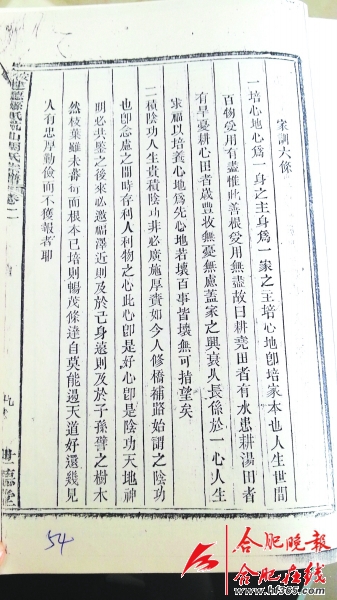 家訓六條
一培心地心爲一身之主身爲一家之主培心地卽培家本也人生世間
百物受用有盡惟此善根受用無盡故曰耕堯田者有水患耕湯田者
有旱憂耕心田者歲豐收無憂無慮蓋家之興衰人長係於一心人生
求福以培養心地爲先心地若壞百事皆壞無可措望矣
二積陰功人生貴積陰功非必廣施厚賚如今人修橋補路始謂之陰功
也卽念慮之間時存利人利物之心此心卽是好心卽是陰功天地神
明必共鑒之後來必邀福澤近則及於己身遠則及於子孫譬之樹木
然枝葉雖未壽而根本已培則暢茂條達自莫能遏天道好還幾見
人有忠厚勤儉而不獲報者耶
卷二
54
合肥晚報
合肥在线
www.hf365.com